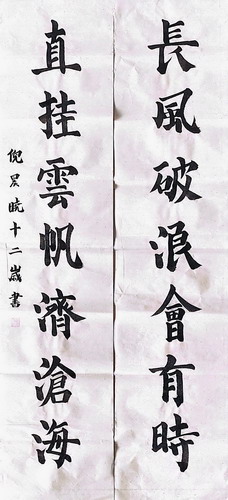 長風破浪會有時
直挂雲帆濟滄海
倪晨曉十二歲書